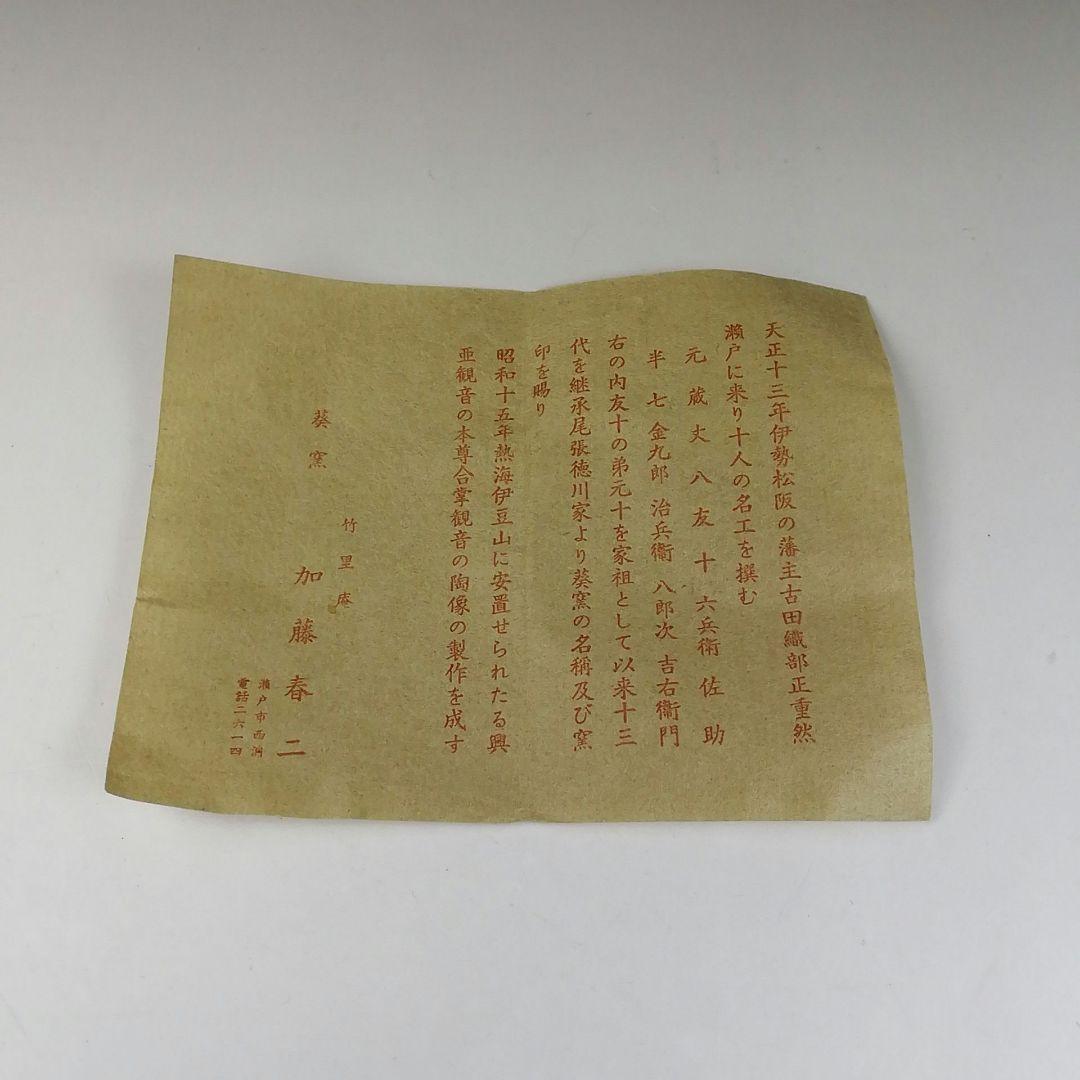 天正十三年伊勢松阪の藩主古田織部正重然
瀬戸に来り十人の名工を撰む
元蔵 丈八 友十 六兵衛 佐助
半七 金九郎 治兵衛 八郎次 吉右衛門
右の内友十の弟元十を家祖として以来十三
代を継承尾張徳川家より葵窯の名稱及び窯
印を賜り
昭和十五年熱海伊豆山に安置せられたる興
亜観音の本尊合掌観音の陶像の製作を成す
葵窯
竹里庵
加藤春二
瀬戸市西洞
電話二六一四